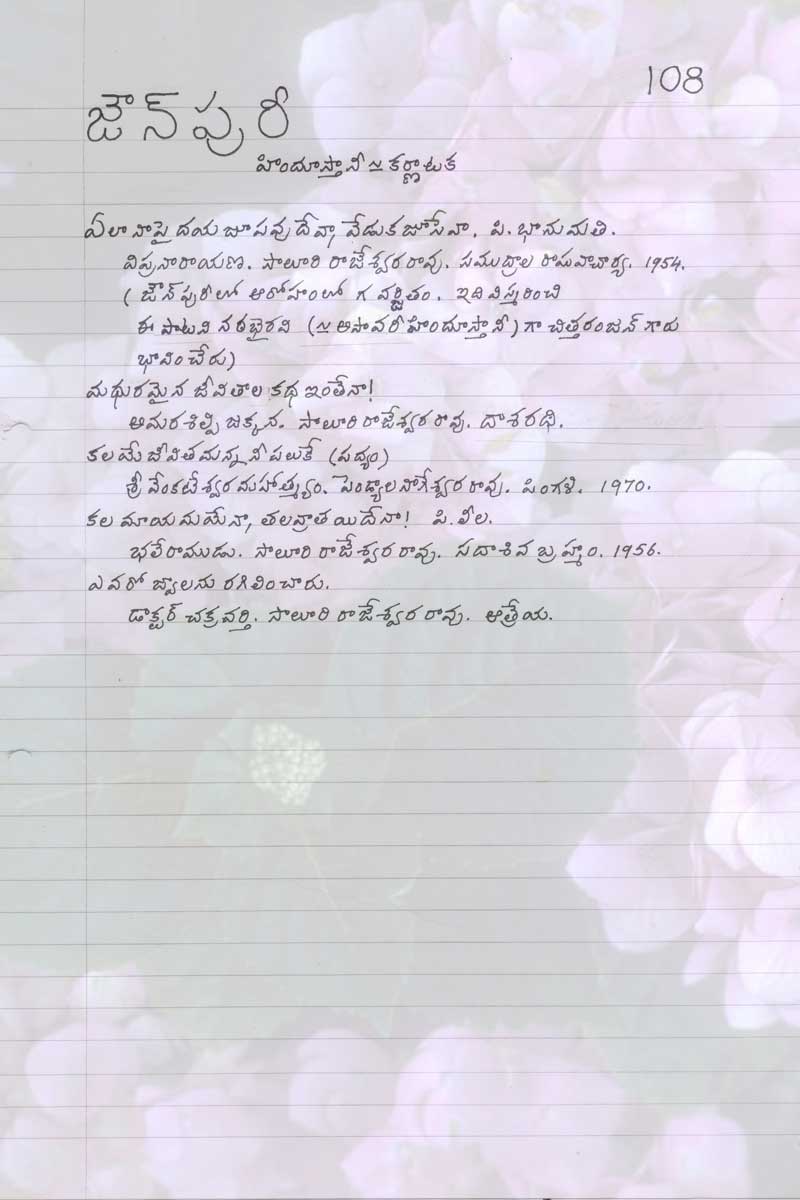 108
జౌన్ పురీ
హిందూస్తానీ ~ కర్ణాటక
ఏలా నాపై దయజూపవు దేవా, వేడుకజూసేవా. పి. భానుమతి.
విప్రనారాయణ. సాలూరి రాజేశ్వరరావు. సముద్రాల రాఘవాచార్య. 1954.
( జౌన్ పురీలో ఆరోహంలో గ వర్జితం. ఇది విస్మరించి
ఈ పాటని నఠభైరవి (~ అసావరీ హిందూస్తానీ) గా చిత్తరంజన్ గారు
భావించేరు)
మధురమైన జీవితాల కథ ఇంతేనా!
అమరశిల్పి జక్కన. సాలూరి రాజేశ్వరరావు. దాశరథి.
కలమే జీవితమన్న నీ పలుకే (పద్యం)
శ్రీ వేంకటేశ్వర మహాత్మ్యం. పెండ్యాల నాగేశ్వరరావు. పింగళి. 1970.
కల మాయమయేనా, తలవ్రాతయిదేనా! పి. లీల.
భలేరాముడు. సాలూరి రాజేశ్వరరావు. సదాశివ బ్రహ్మం. 1956.
ఎవరో జ్వాలను రగిలించారు.
డాక్టర్ చక్రవర్తి. సాలూరి రాజేశ్వరరావు. ఆత్రేయ.